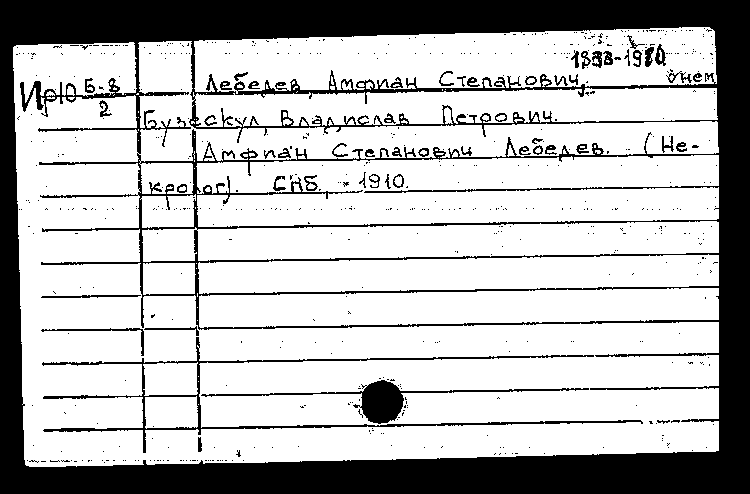 1833-1910
Лебедев, Амфиан Степанович, о нем
Ир10 Б-8
2
Бузескул, Владислав Петрович.
Амфиан Степанович Лебедев. (Не-
кролог). СПб, 1910.